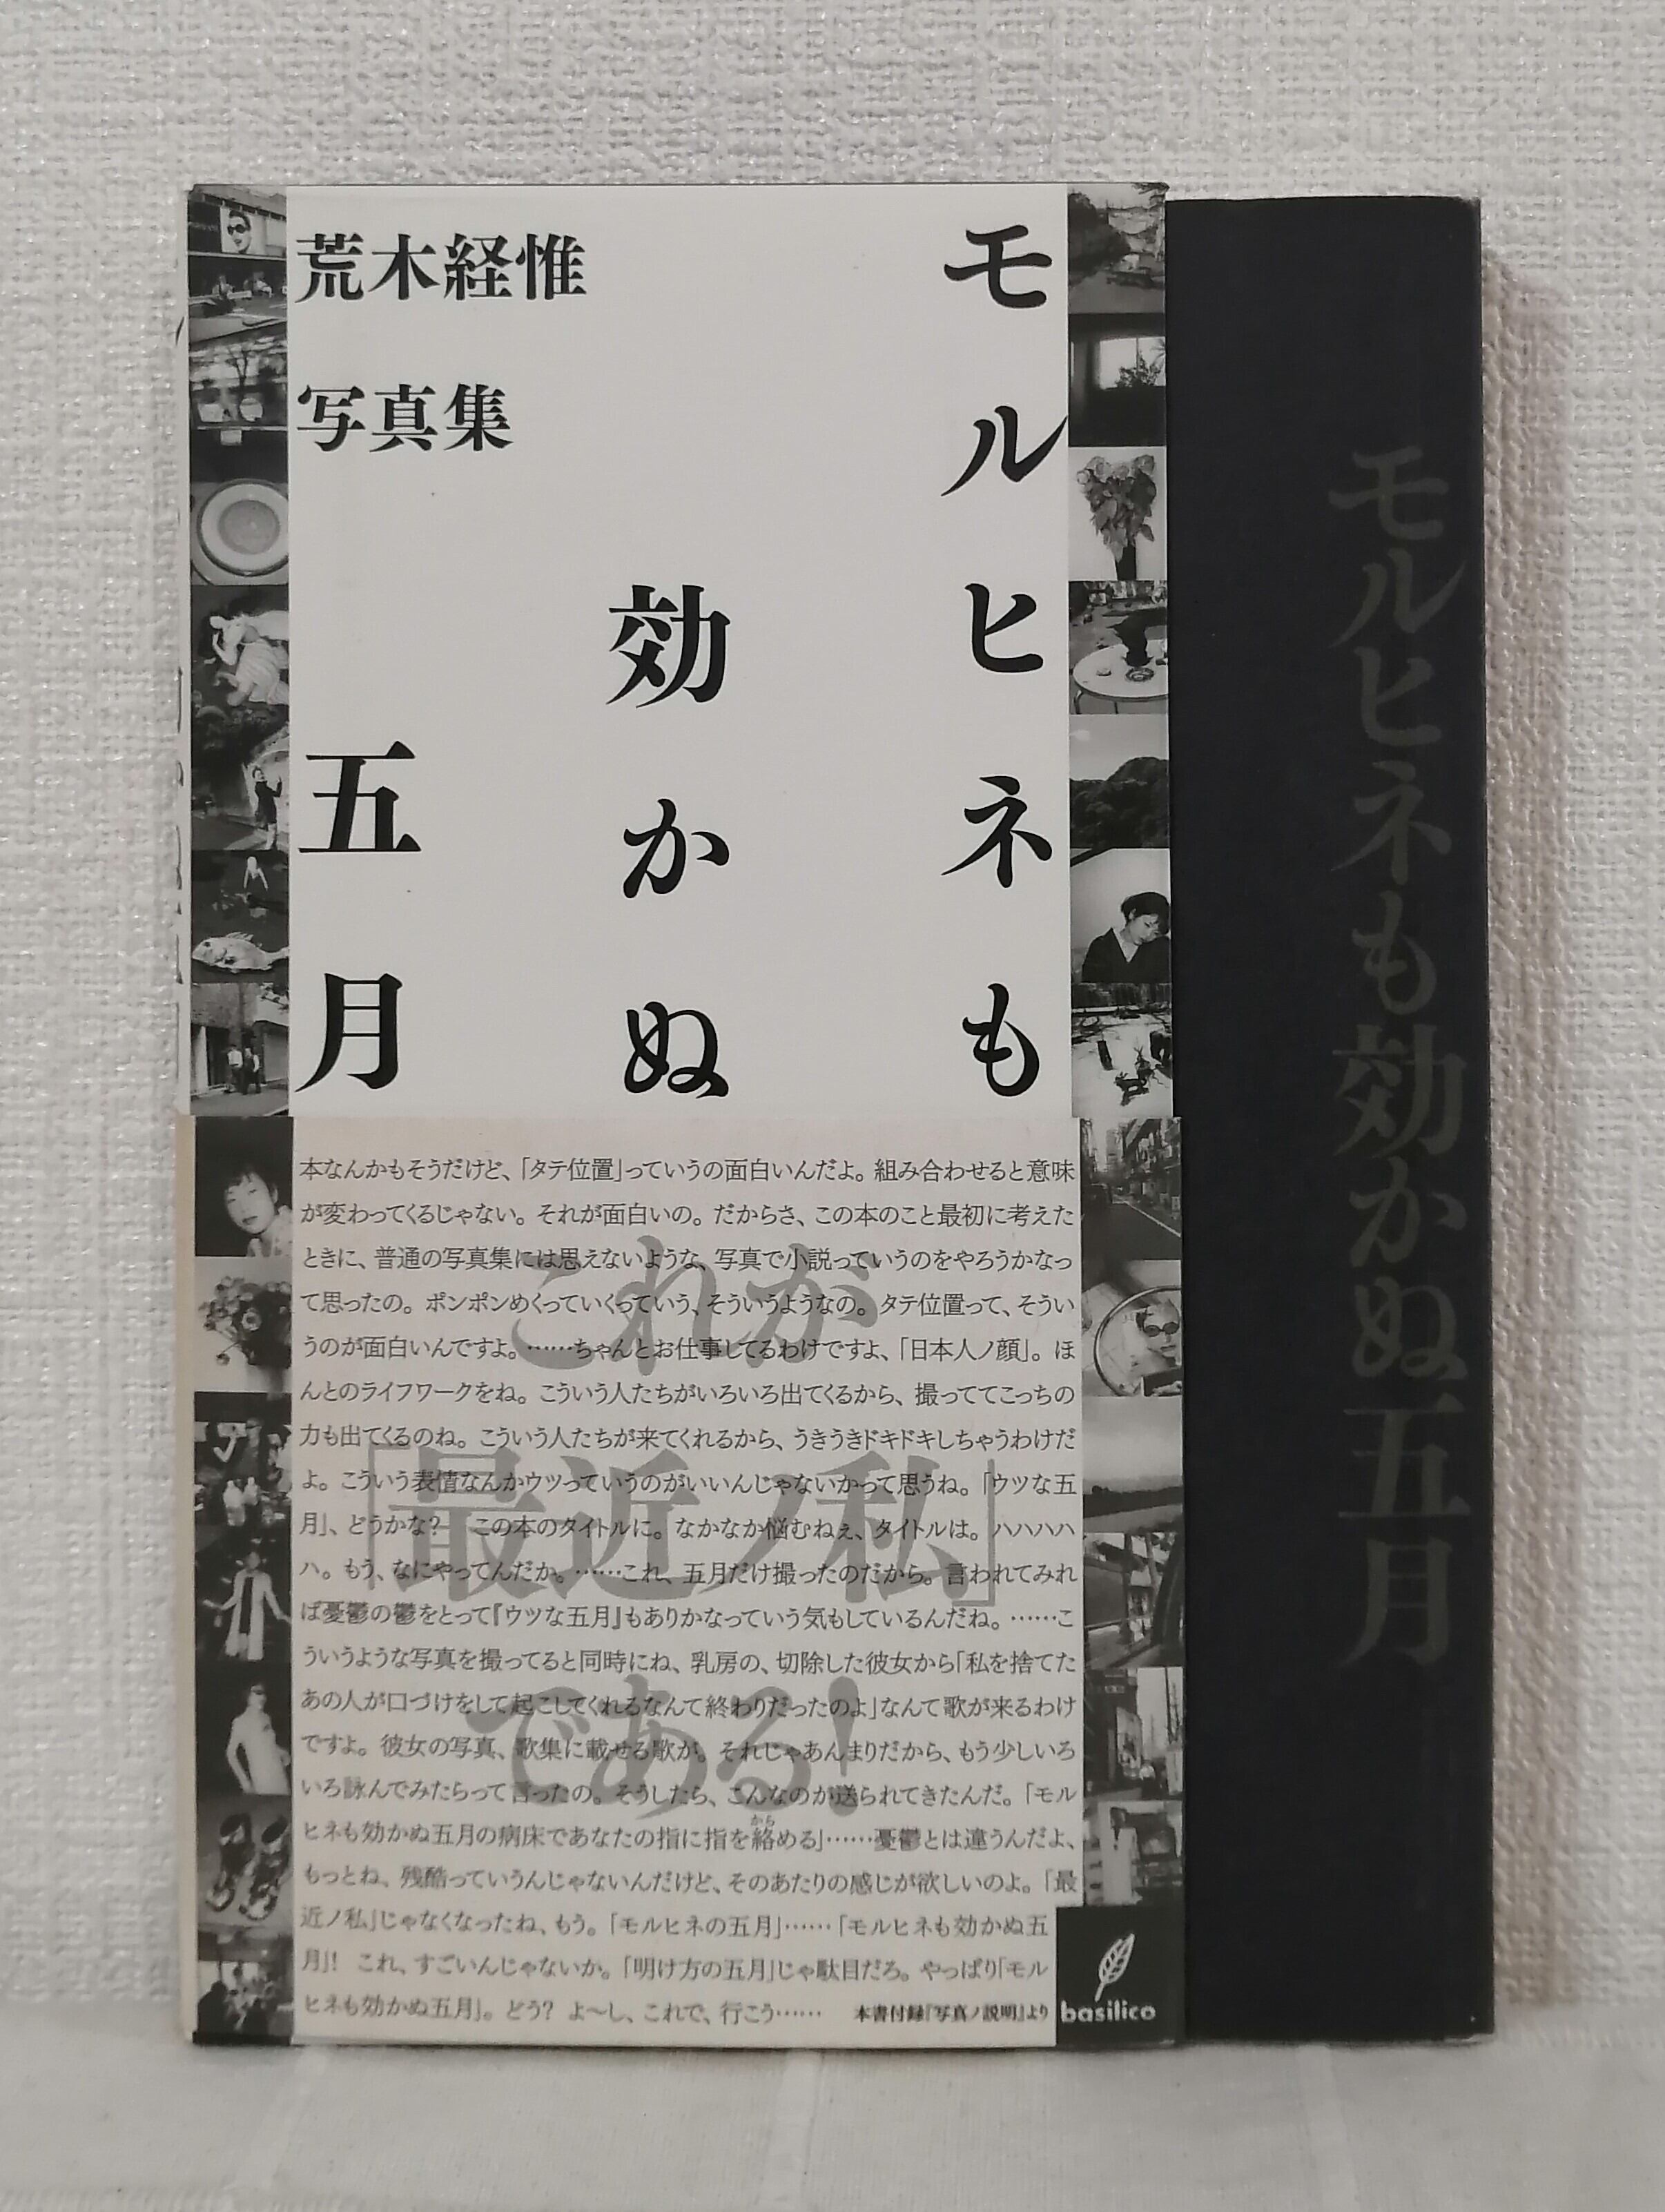 荒木経惟
写真集
モルヒネも
効かぬ
五月
本なんかもそうだけど、「タテ位置」っていうの面白いんだよ。組み合わせると意味
が変わってくるじゃない。それが面白いの。だからさ、この本のこと最初に考えた
ときに、普通の写真集には思えないような、写真で小説っていうのをやろうかなっ
て思ったの。ポンポンめくっていくっていう、そういうようなの。タテ位置って、そうい
うのが面白いんですよ。……ちゃんとお仕事してるわけですよ、「日本人ノ顔」。ほ
んとのライフワークをね。こういう人たちがいろいろ出てくるから、撮っててこっちの
力も出てくるのね。こういう人たちが来てくれるから、うきうきドキドキしちゃうわけだ
よ。こういう表情なんかウツっていうのがいいんじゃないかって思うね。「ウツな五
月」、どうかな? この本のタイトルに。なかなか悩むねぇ、タイトルは。ハハハハ
ハ。もう、なにやってんだか。……これ、五月だけ撮ったのだから。言われてみれ
ば憂鬱の鬱をとって『ウツな五月』もありかなっていう気もしているんだね。……こ
ういうような写真を撮ってると同時にね、乳房の、切除した彼女から「私を捨てた
あの人が口づけをして起こしてくれるなんて終わりだったのよ」なんて歌が来るわけ
ですよ。彼女の写真、歌集に載せる歌が。それじゃあんまりだから、もう少しいろ
いろ詠んでみたらって言ったの。そうしたら、こんなのが送られてきたんだ。「モル
ヒネも効かぬ五月の病床であなたの指に指を絡める」……憂鬱とは違うんだよ、
から
もっとね、残酷っていうんじゃないんだけど、そのあたりの感じが欲しいのよ。「最
近ノ私」じゃなくなったね、もう。「モルヒネの五月」……「モルヒネも効かぬ五
月」! これ、すごいんじゃないか。「明け方の五月」じゃ駄目だろ。やっぱり「モル
ヒネも効かぬ五月」。どう? よ〜し、これで、行こう……
本書付録『写真ノ説明』より
これが
「最近ノ私」
である!
basilico
モルヒネも効かぬ五月